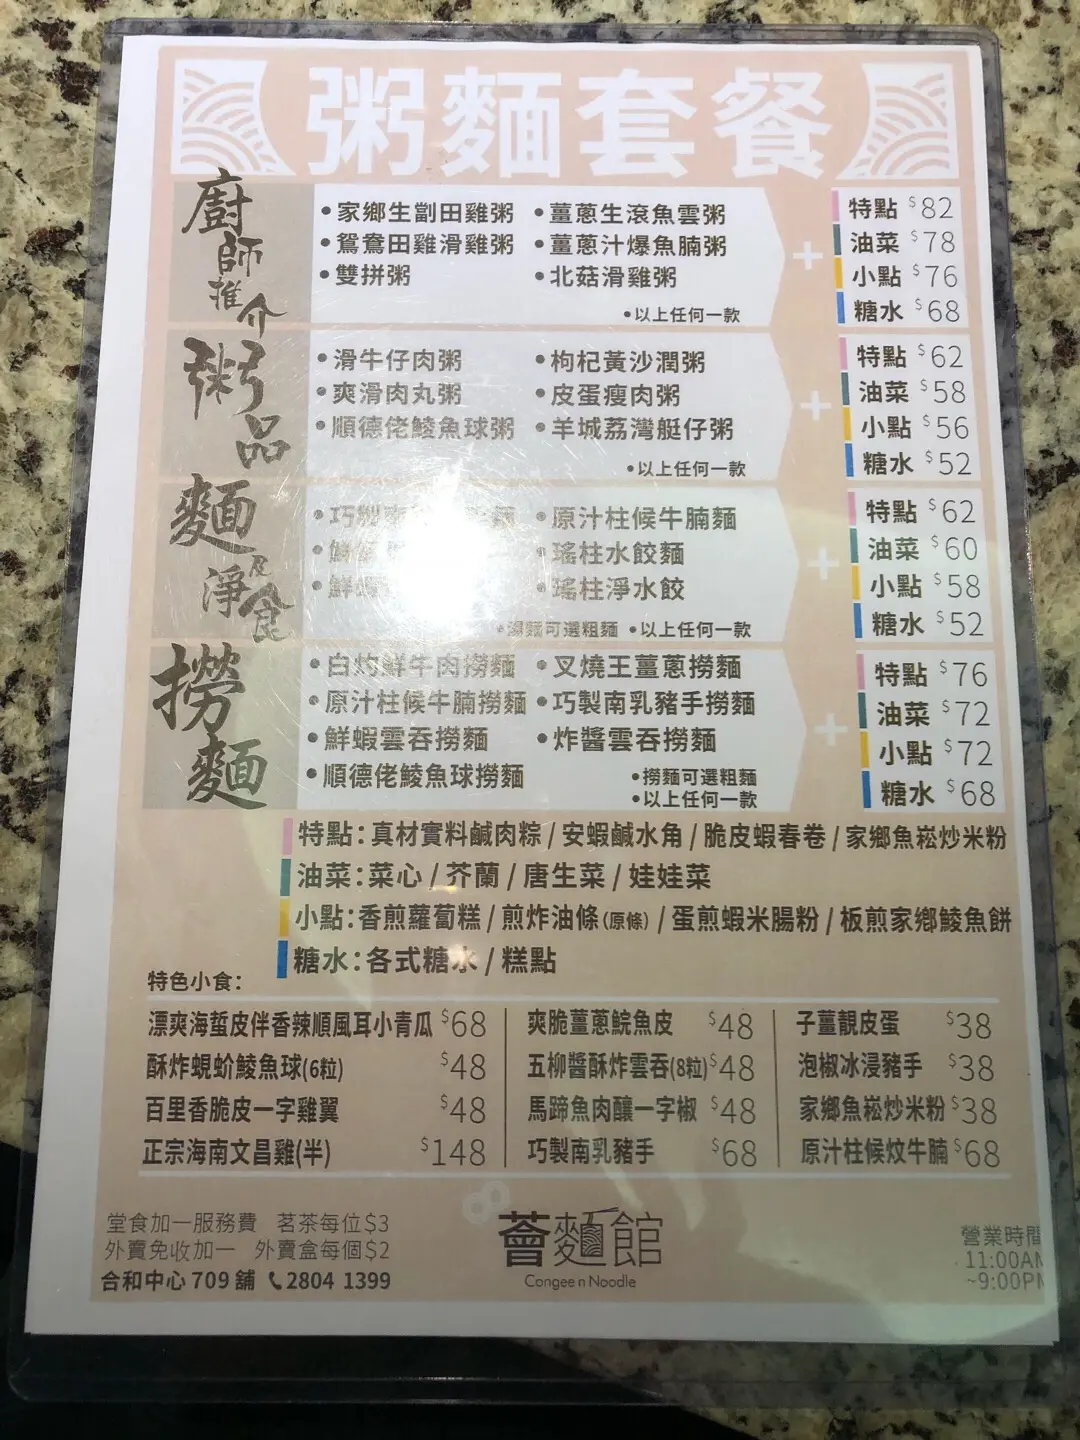 粥麵套餐
廚師推介
•家鄉生劏田雞粥 •薑蔥生滾魚雲粥
•鴛鴦田雞滑雞粥 •薑蔥汁爆魚腩粥
•雙拼粥 •北菇滑雞粥
•以上任何一款
+
特點 $82
油菜 $78
小點 $76
糖水 $68
粥品
•滑牛仔肉粥 •枸杞黃沙潤粥
•爽滑肉丸粥 •皮蛋瘦肉粥
•順德佬鯪魚球粥 •羊城荔灣艇仔粥
•以上任何一款
+
特點 $62
油菜 $58
小點 $56
糖水 $52
麵及淨食
•巧製 麵 •原汁柱候牛腩麵
•鮮 •瑤柱水餃麵
•鮮蝦 •瑤柱淨水餃
•湯麵可選粗麵 •以上任何一款
+
特點 $62
油菜 $60
小點 $58
糖水 $52
撈麵
•白灼鮮牛肉撈麵 •叉燒王薑蔥撈麵
•原汁柱候牛腩撈麵 •巧製南乳豬手撈麵
•鮮蝦雲吞撈麵 •炸醬雲吞撈麵
•順德佬鯪魚球撈麵
•撈麵可選粗麵
•以上任何一款
+
特點 $76
油菜 $72
小點 $72
糖水 $68
特點：真材實料鹹肉粽 / 安蝦鹹水角 / 脆皮蝦春卷 / 家鄉魚崧炒米粉
油菜：菜心 / 芥蘭 / 唐生菜 / 娃娃菜
小點：香煎蘿蔔糕 / 煎炸油條(原條) / 蛋煎蝦米腸粉 / 板煎家鄉鯪魚餅
糖水：各式糖水 / 糕點
特色小食：
漂爽海蜇皮伴香辣順風耳小青瓜 $68
酥炸蜆蚧鯪魚球(6粒) $48
百里香脆皮一字雞翼 $48
正宗海南文昌雞(半) $148
爽脆薑蔥鯇魚皮 $48
五柳醬酥炸雲吞(8粒) $48
馬蹄魚肉釀一字椒 $48
巧製南乳豬手 $68
子薑靚皮蛋 $38
泡椒冰浸豬手 $38
家鄉魚崧炒米粉 $38
原汁柱候炆牛腩 $68
堂食加一服務費 茗茶每位$3
外賣免收加一 外賣盒每個$2
合和中心 709 舖 2804 1399
薈麵館
Congee n Noodle
營業時間
11:00AM
~9:00PM